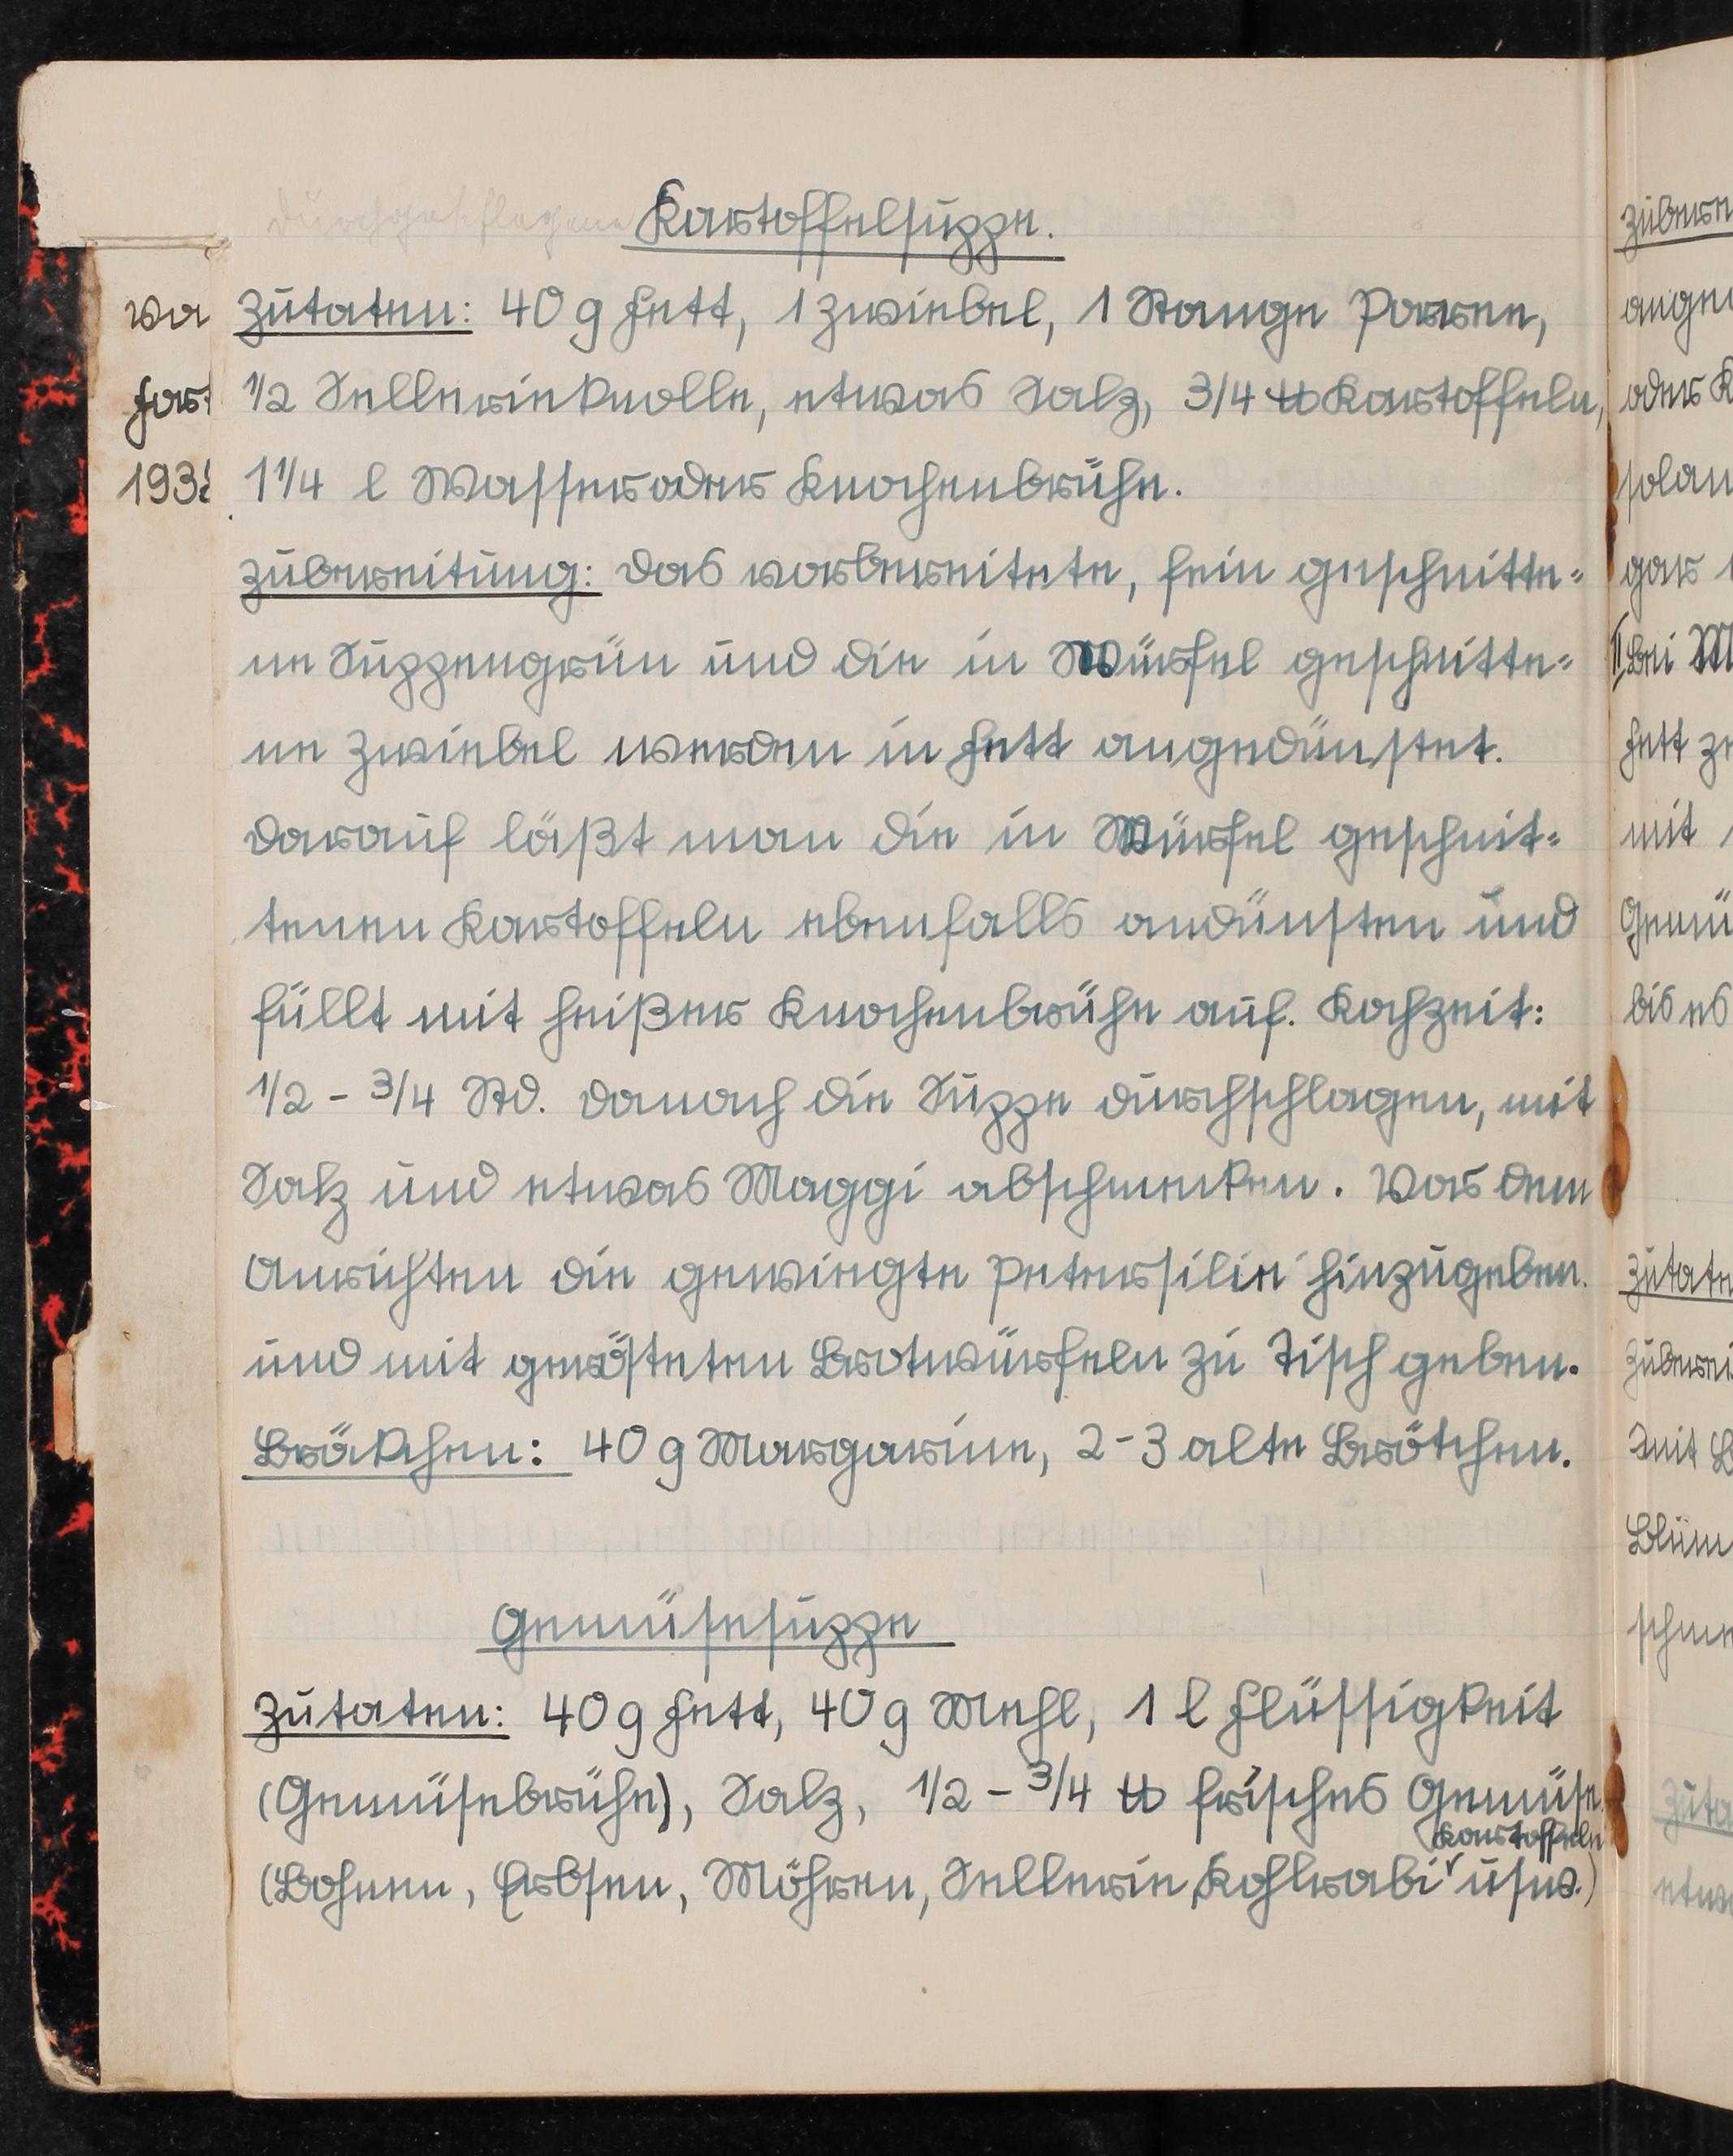 durchgeschlagene Kartoffelsuppe.
Zutaten: 40 g Fett, 1 Zwiebel, 1 Stange Porree,
1/2 Sellerieknolle, etwas Salz, 3/4 ℔ Kartoffeln,
1 1/4 l Wasser oder Knochenbrühe.
Zubereitung: Das vorbereitete, fein geschnitte=
ne Suppengrün und die in Würfel geschnitte=
ne Zwiebel werden in Fett angedünstet.
Darauf läßt man die in Würfel geschnit=
tenen Kartoffeln ebenfalls andünsten und
füllt mit heißer Knochenbrühe auf. Kochzeit:
1/2 - 3/4 Std. Danach die Suppe durchschlagen, mit
Salz und etwas Maggi abschmecken. Vor dem
Anrichten die gewiegte Petersilie hinzugeben.
und mit gerösteten Brotwürfeln zu Tisch geben.
Bröckchen: 40 g Margarine, 2-3 alte Brötchen.
Gemüsesuppe
Zutaten: 40 g Fett, 40 g Mehl, 1 l Flüssigkeit
(Gemüsebrühe), Salz, 1/2 - 3/4 ℔ frisches Gemüse.
Kartoffeln
(Bohnen, Erbsen, Möhren, Sellerie, Kohlrabi usw.)
193
Zuberei
oder K
gar
II Bei M
Fett ze
mit
Gemü
bis es
Zutate
Zuberei
mit B
Blum
schme
Zuta
etwa